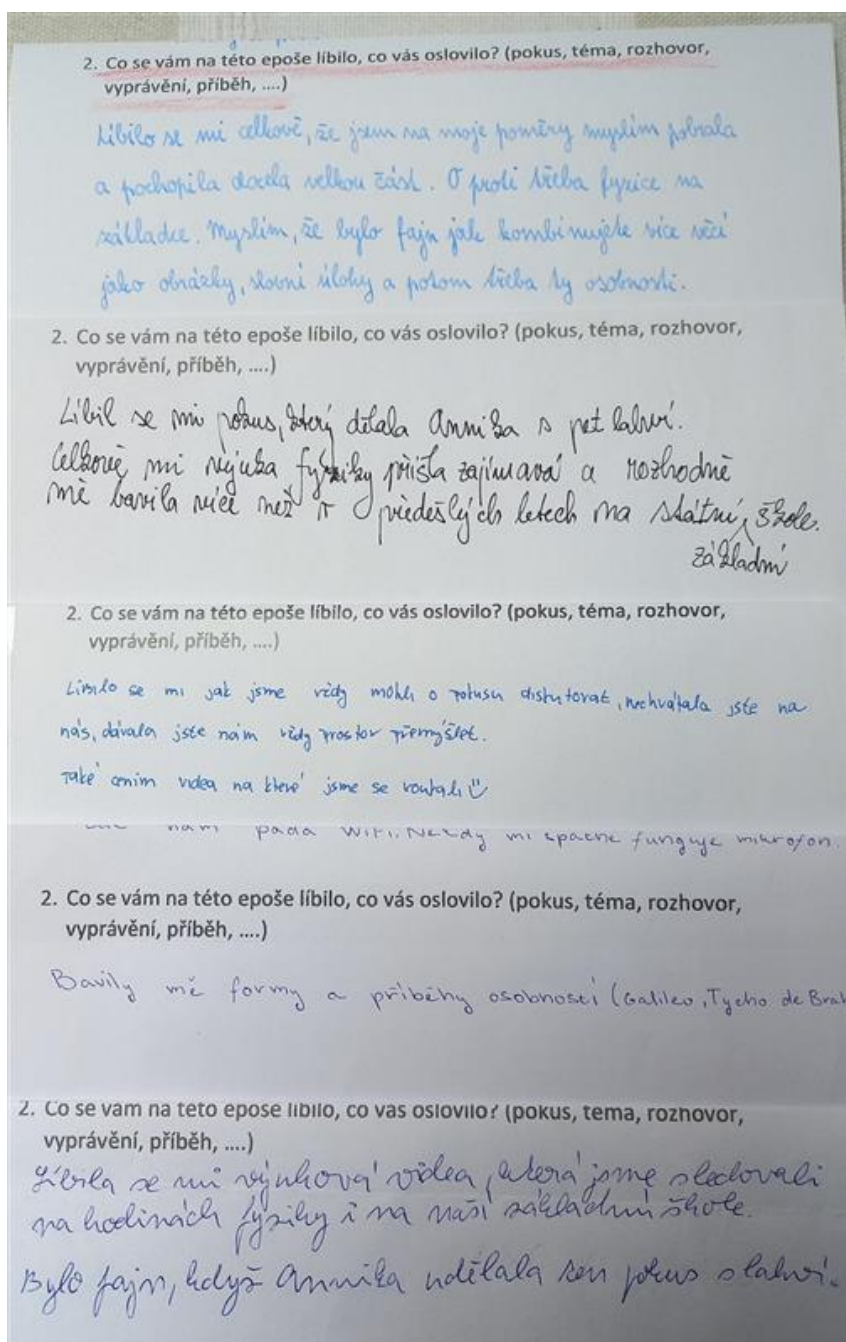 2. Co se vám na této epoše líbilo, co vás oslovilo? (pokus, téma, rozhovor,
vyprávění, příběh, ....)
Líbilo se mi celkově, že jsem na moje poměry myslím pobrala
a pochopila docela velkou část. O proti třeba fyzice na
základce. Myslím, že bylo fajn jak kombinujete více věcí
jako obrázky, slovní úlohy a potom třeba ty osobnosti.
2. Co se vám na této epoše líbilo, co vás oslovilo? (pokus, téma, rozhovor,
vyprávění, příběh, ....)
Líbil se mi pokus, který dělala Annika s pet lahví.
Celkově mi výuka fyziky přišla zajímavá a rozhodně
mě bavila více než v předešlých letech na státní, škole.
základní
2. Co se vám na této epoše líbilo, co vás oslovilo? (pokus, téma, rozhovor,
vyprávění, příběh, ....)
Líbilo se mi jak jsme vždy mohli o pokusu diskutovat, nechvátala jste na
nás, dávala jste nám vždy prostor přemýšlet.
Také cením videa na které jsme se koukali
nám padá WiFi. Někdy mi špatně funguje mikrofon.
2. Co se vám na této epoše líbilo, co vás oslovilo? (pokus, téma, rozhovor,
vyprávění, příběh, ....)
Bavily mě formy a příběhy osobností (Galileo, Tycho de Brah
2. Co se vám na této epoše líbilo, co vás oslovilo? (pokus, téma, rozhovor,
vyprávění, příběh, ....)
Líbila se mi výuková videa, která jsme sledovali
na hodinách fyziky i na naší základní škole.
Bylo fajn, když Annika udělala ten pokus s lahví.